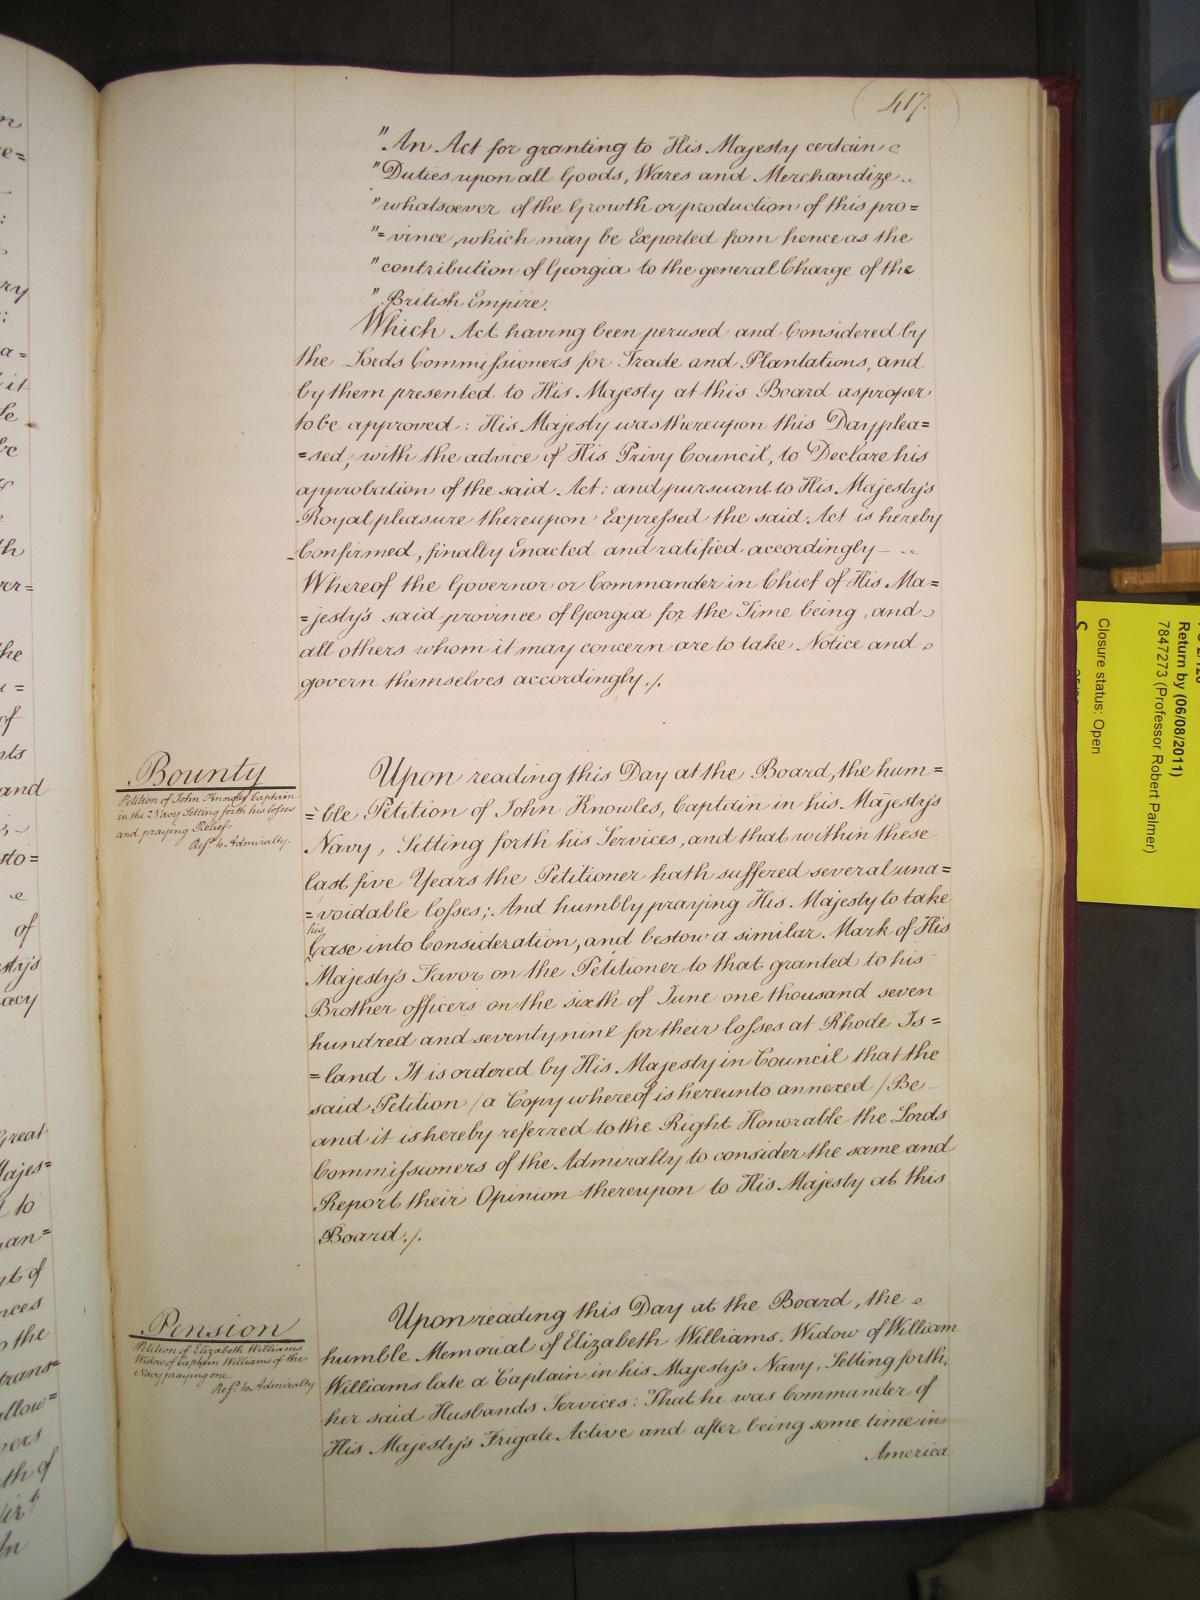 417.
"An Act for granting to His Majesty certain
"Duties upon all Goods, Wares and Merchandize
"whatsoever of the Growth or production of this pro=
"=vince, which may be Exported from hence as the
"contribution of Georgia to the general Charge of the
"British Empire.
Which Act having been perused and Considered by
the Lords Commissioners for Trade and Plantations, and
by them presented to His Majesty at this Board as proper
to be approved: His Majesty was thereupon this Day plea=
=sed, with the advice of His Privy Council, to Declare his
approbation of the said Act: and pursuant to His Majesty's
Royal pleasure thereupon Expressed the said Act is hereby
Confirmed, finally Enacted and ratified accordingly —
Whereof the Governor or Commander in Chief of His Ma=
=jesty's said province of Georgia for the Time being, and
all others whom it may concern are to take Notice and
govern themselves accordingly./.
Bounty
Petition of John Knowles Captain
in the Navy Setting forth his losses
and praying Relief.
Refd. to Admiralty.
Upon reading this Day at the Board, the hum=
=ble Petition of John Knowles, Captain in his Majesty's
Navy, Setting forth his Services, and that within these
last five Years the Petitioner hath suffered several una=
=voidable losses; And humbly praying His Majesty to take
his
Case into Consideration, and bestow a similar Mark of His
Majesty's Favor on the Petitioner to that granted to his
Brother officers on the sixth of June one thousand seven
hundred and seventy nine for their losses at Rhode Is=
=land It is ordered by His Majesty in Council that the
said Petition /a Copy whereof is hereunto annexed/ Be
and it is hereby referred to the Right Honorable the Lords
Commissioners of the Admiralty to consider the same and
Report their Opinion thereupon to His Majesty at this
Board./.
Pension
Petition of Elizabeth Williams
Widow of Captain Williams of the
Navy praying one
Refd. to Admiralty
Upon reading this Day at the Board, the
humble Memorial of Elizabeth Williams. Widow of William
Williams late a Captain in his Majesty's Navy, Setting forth,
her said Husbands Services: That he was Commander of
His Majesty's Frigate Active and after being some time in
America
Return by (06/08/2011)
7847273 (Professor Robert Palmer)
Closure status: Open